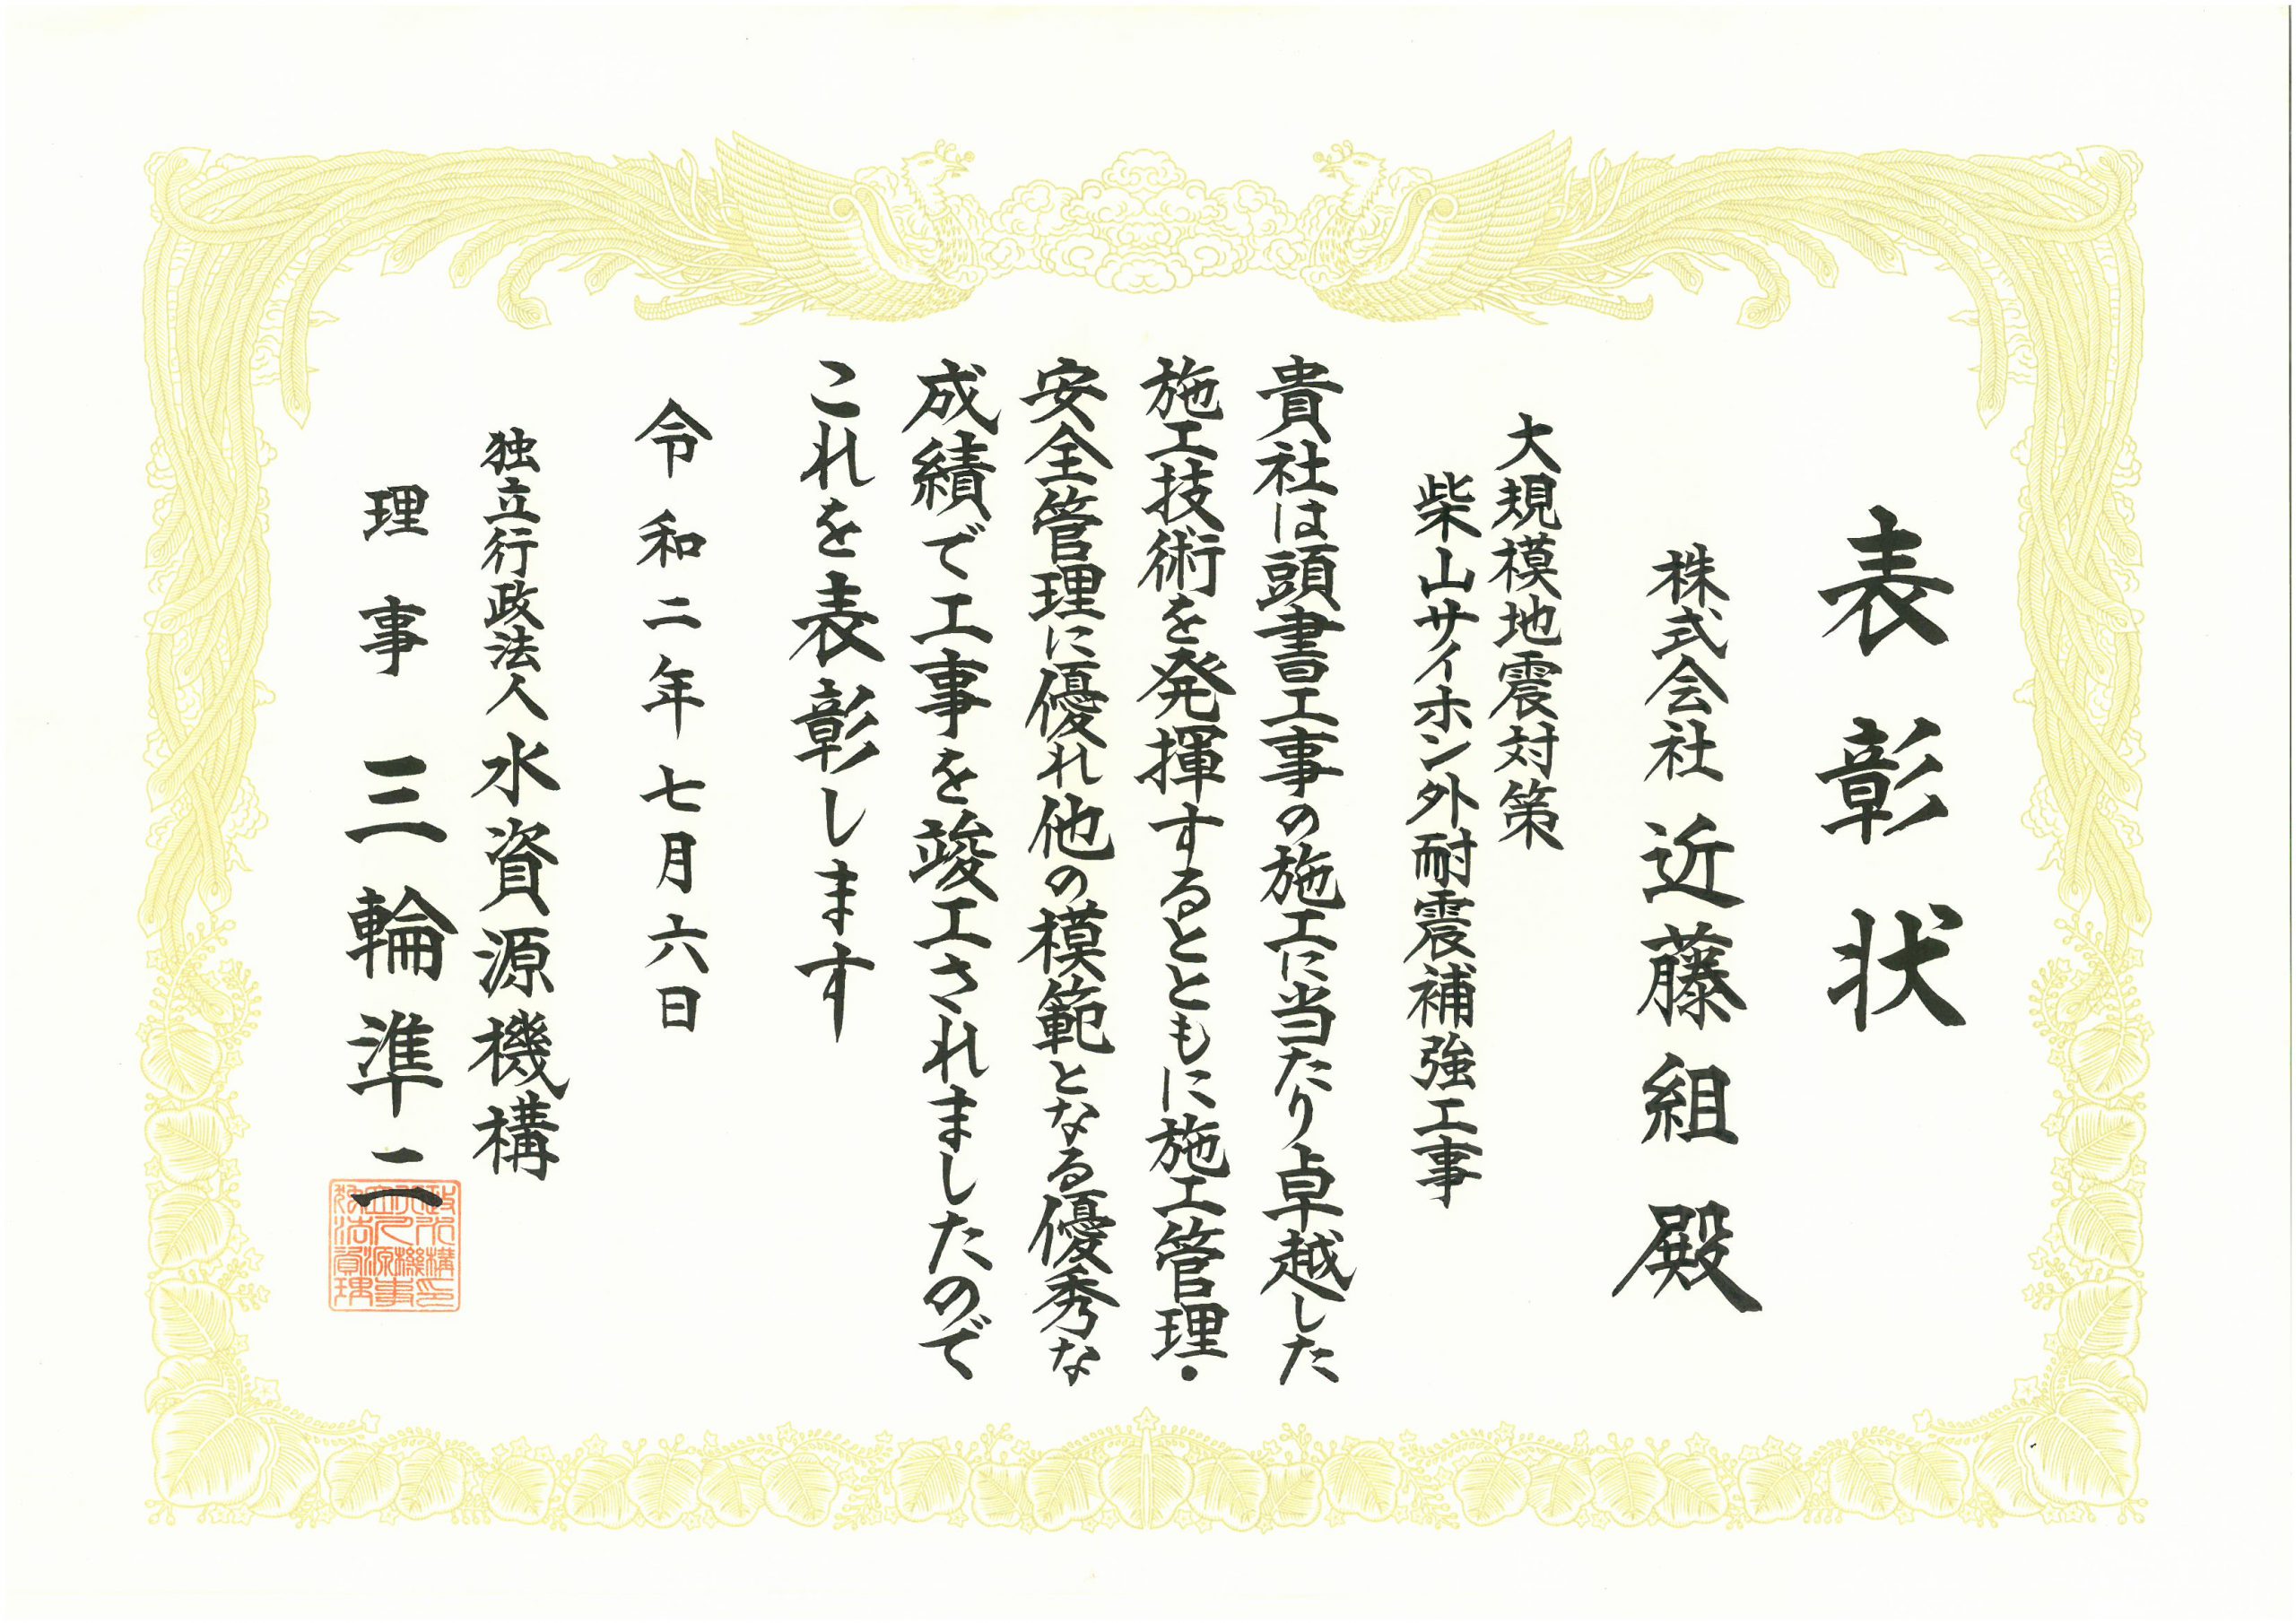 表彰状
株式会社 近藤組 殿
大規模地震対策
柴山サイホン外耐震補強工事
貴社は頭書工事の施工に当たり卓越した
施工技術を発揮するとともに施工管理・
安全管理に優れ他の模範となる優秀な
成績で工事を竣工されましたので
これを表彰します
令和二年七月六日
独立行政法人 水資源機構
理事 三輪準二